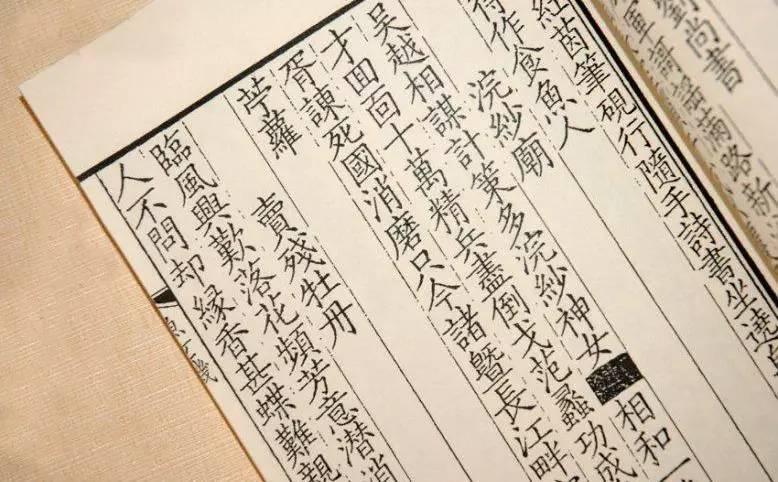 劉尚書
軍謌謡滿路新
紅茵筆硯行隨手詩書坐遶
得作食魚人
浣紗廟
吳越相謀計策多浣紗神女相和一
才面回十萬精兵盡倒戈范蠡功成
胥諫死國消磨只今諸暨長江畔
苧蘿
賣殘牡丹
臨風興歎落花頻芳意潛消
人不問却緣香甚蝶難親
魚機